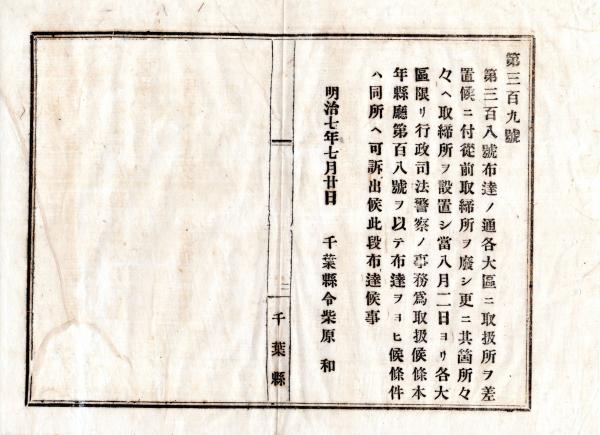 第三百九號
第三百八號布達ノ通各大區ニ取扱所ヲ差
置候ニ付從前取締所ヲ廢シ更ニ其箇所々
々ヘ取締所ヲ設置シ當八月二日ヨリ各大
區限リ行政司法警察ノ事務爲取扱候條本
年縣廳第百八號ヲ以テ布達ヲヨヒ候條件
ハ同所ヘ可訴出候此段布達候事
明治七年七月廿日　千葉縣令柴原　和
二
千葉縣